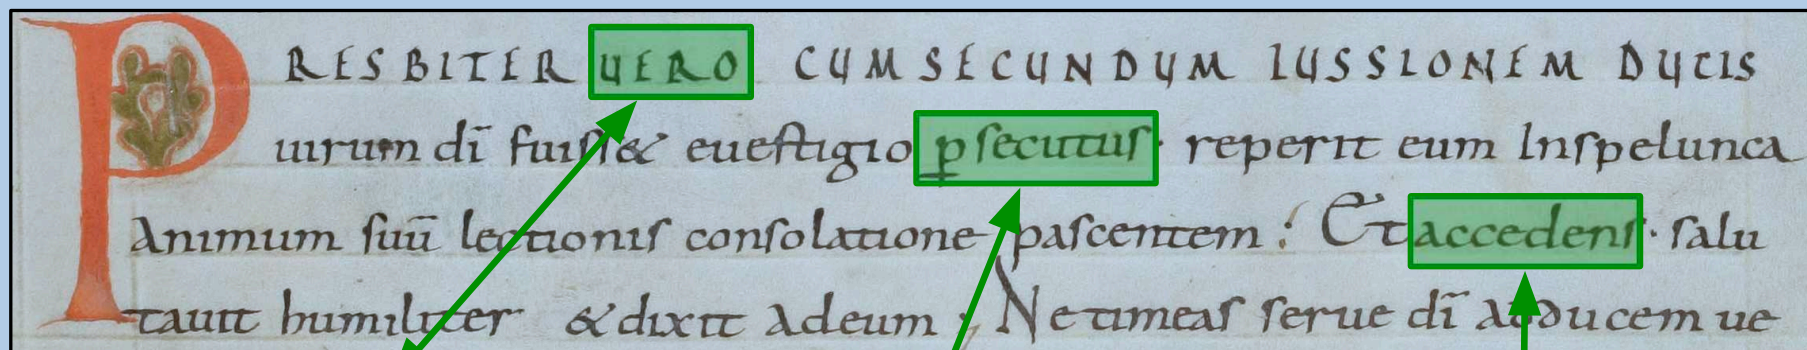 PRESBITER UERO CUM SECUNDUM IUSSIONEM DUCIS
uirum dī fuiss& euestigio p̱secutus · reperit eum Inspelunca
Animum suū lectionis consolatione pascentem : Et accedens · salu
tauit humiliter & dixit adeum ; Ne timeas serue dī adducem ue